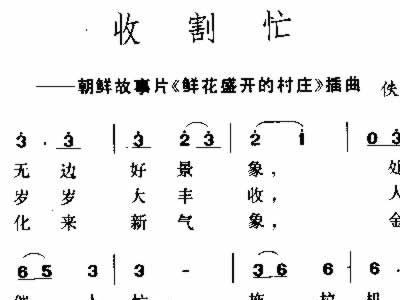 收割忙
——朝鲜故事片《鲜花盛开的村庄》插曲 佚
3 · 3 | 3 2 3 | 2 1 | 0 3
无 边 好 景 象，
岁 岁 大 丰 收， 人
化 来 新 气 象， 金
6 5 3 | 3 - | 3 6 6 | 6 ·